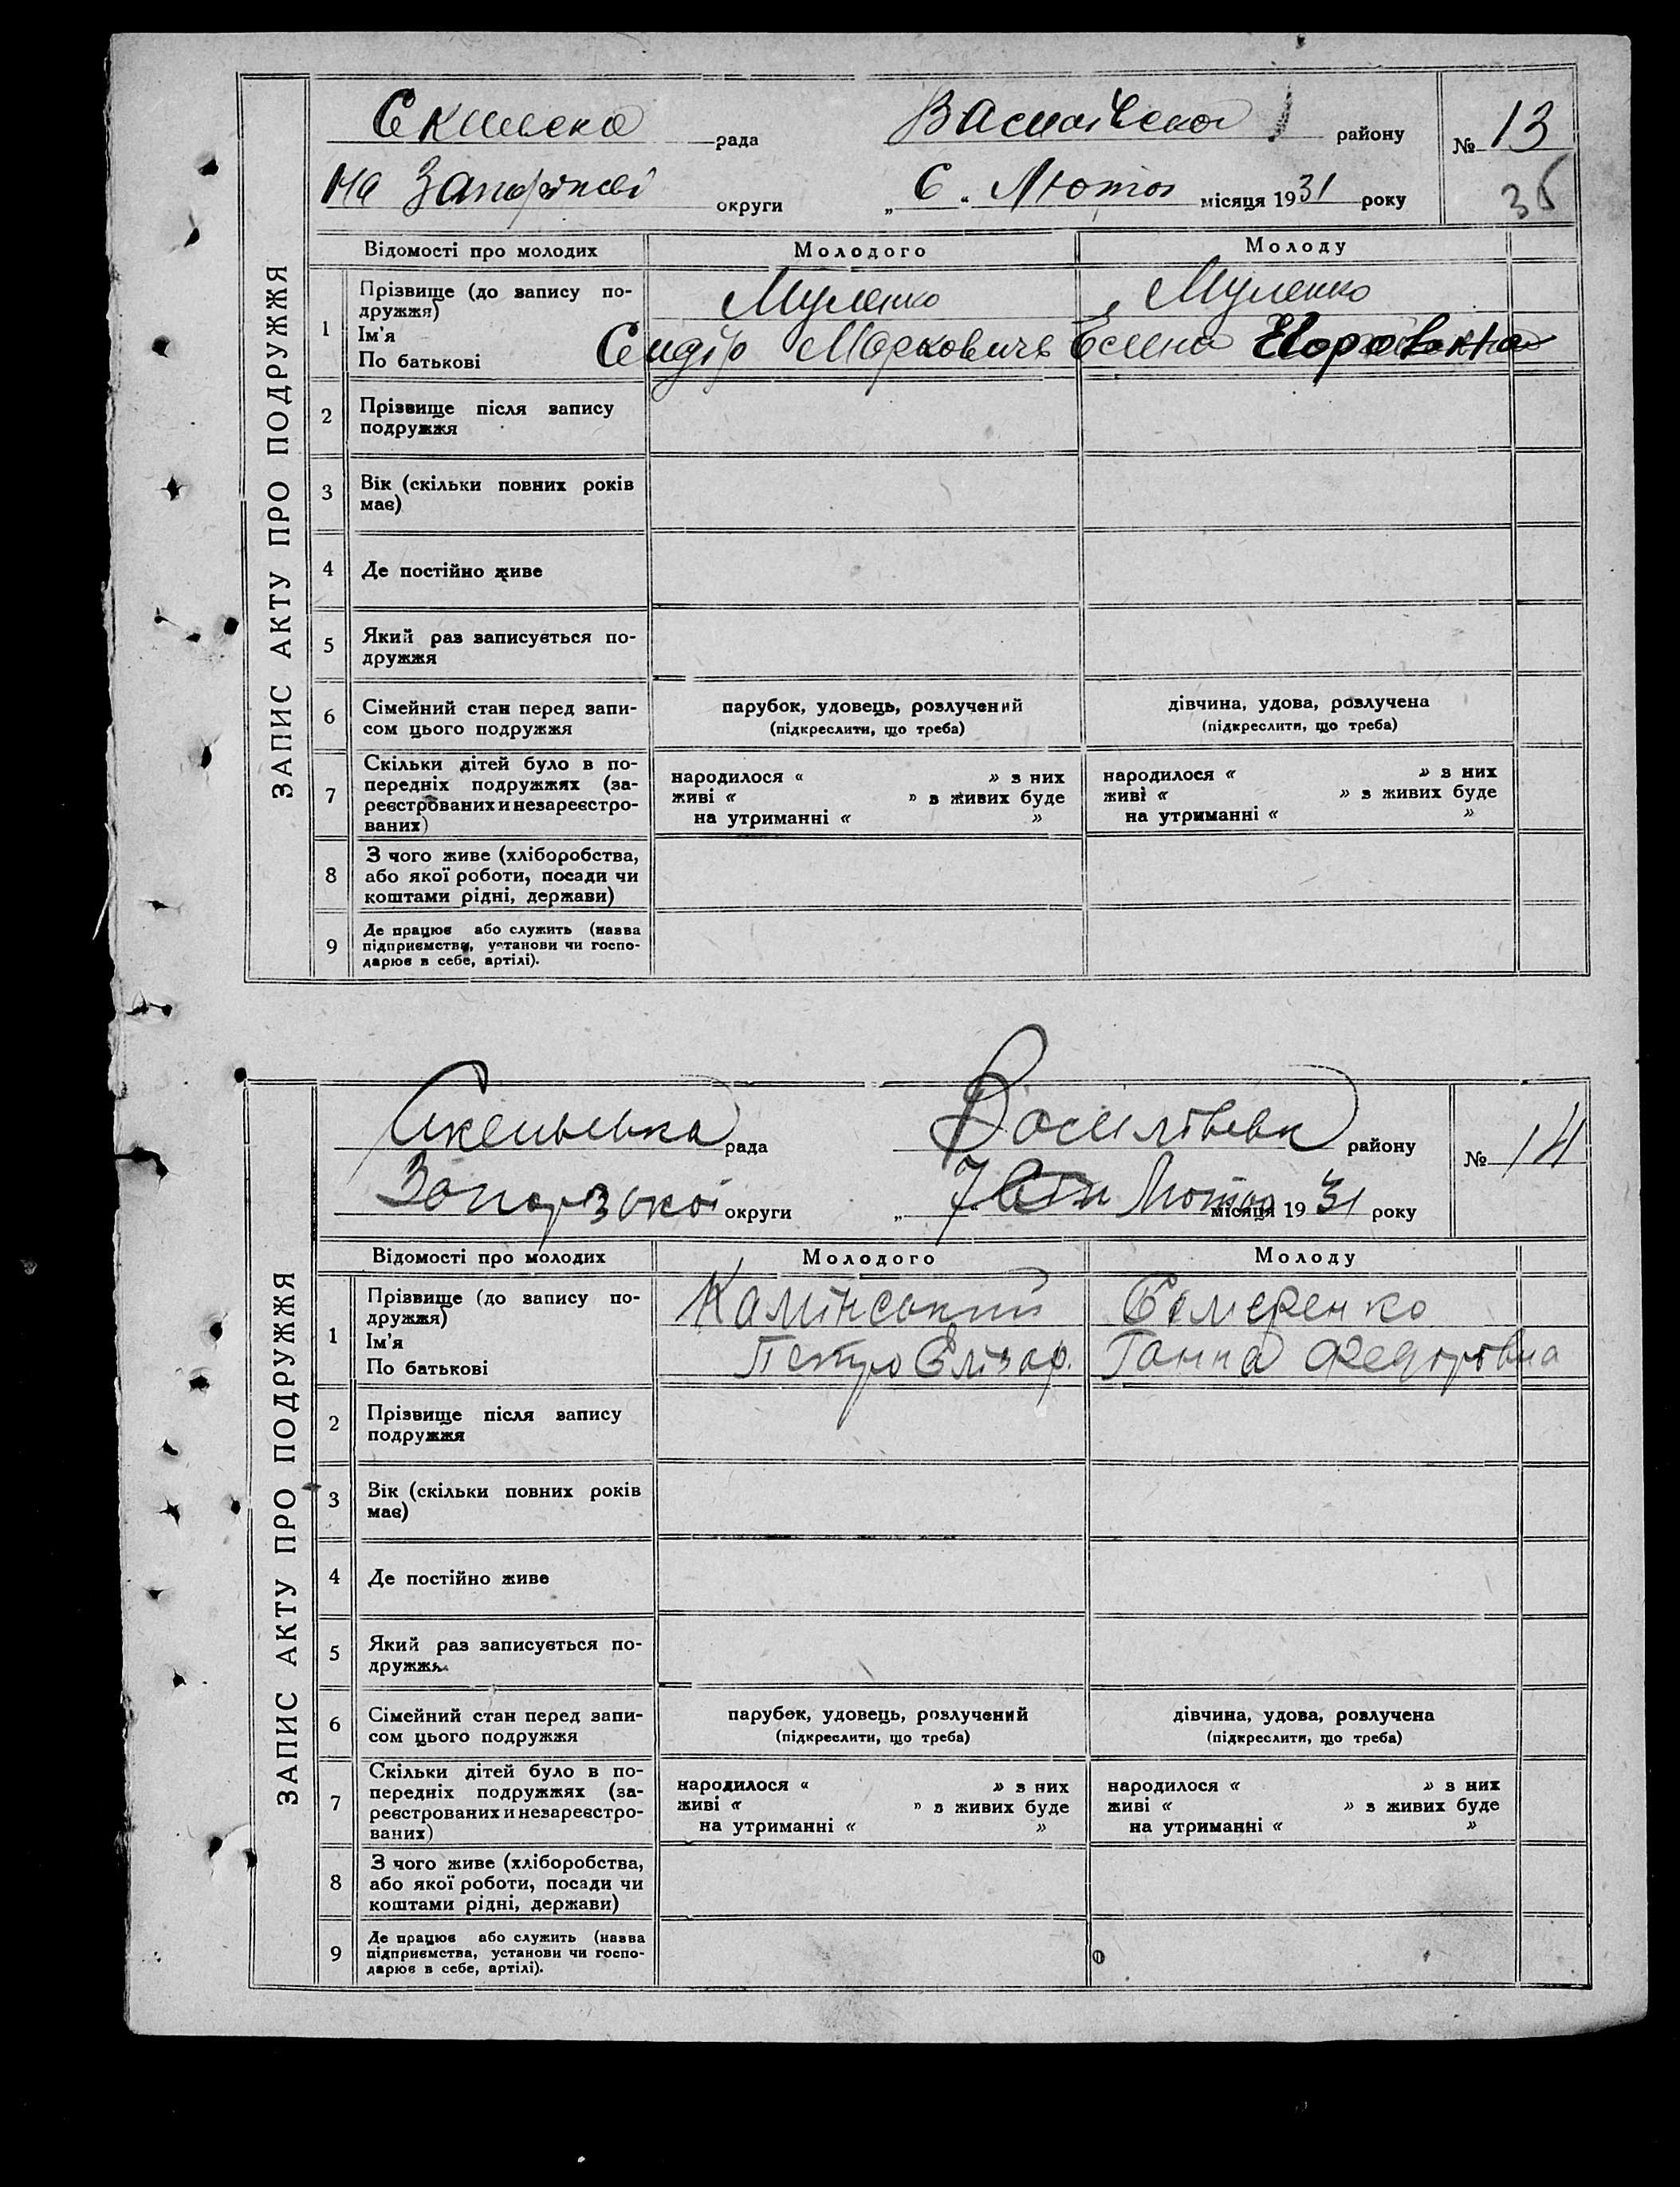 ЗАПИС АКТУ ПРО ПОДРУЖЖЯ
рада району № 13
На округи „ 6 “ Лютог місяця 1931 року 35
Відомості про молодих Молодого Молоду
1 Прізвище (до запису по-
дружжя) Муленко Муленко
Ім'я
По батькові Сидір Маркович Елена Егоровна
2 Прізвище після запису
подружжя
3 Вік (скільки повних років
має)
4 Де постійно живе
5 Який раз записується по-
дружжя
6 Сімейний стан перед запи-
сом цього подружжя
парубок, удовець, розлучений дівчина, удова, розлучена
(підкреслити, що треба) (підкреслити, що треба)
7 Скільки дітей було в по-
передніх подружжях (за-
реєстрованих и незареєстро-
ваних)
народилося « » з них народилося « » з них
живі « » з живих буде живі « » з живих буде
на утриманні « » на утриманні « »
8 З чого живе (хліборобства,
або якої роботи, посади чи
коштами рідні, держави)
9 Де працює або служить (назва
підприємства, установи чи госпо-
дарює в себе, артілі).
ЗАПИС АКТУ ПРО ПОДРУЖЖЯ
Скельська рада Василівськ району № 14
округи „ 7 Лютого місяця 1931 року
Відомості про молодих Молодого Молоду
1 Прізвище (до запису по-
дружжя) Калінський Семеренко
Ім'я
По батькові Петро Елізар. Ганна Федорівна
2 Прізвище після запису
подружжя
3 Вік (скільки повних років
має)
4 Де постійно живе
5 Який раз записується по-
дружжя
6 Сімейний стан перед запи-
сом цього подружжя
парубок, удовець, розлучений дівчина, удова, розлучена
(підкреслити, що треба) (підкреслити, що треба)
7 Скільки дітей було в по-
передніх подружжях (за-
реєстрованих и незареєстро-
ваних)
народилося « » з них народилося « » з них
живі « » з живих буде живі « » з живих буде
на утриманні « » на утриманні « »
8 З чого живе (хліборобства,
або якої роботи, посади чи
коштами рідні, держави)
9 Де працює або служить (назва
підприємства, установи чи госпо-
дарює в себе, артілі).